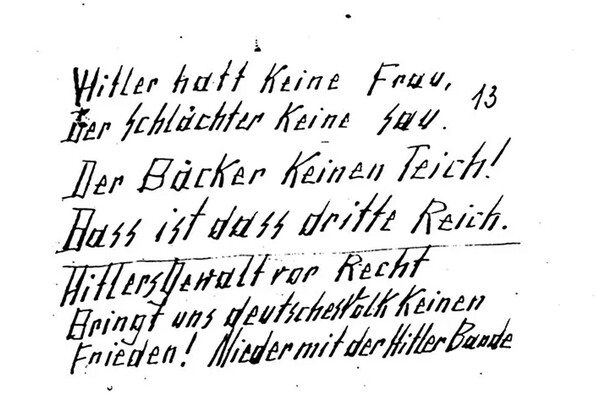 Hitler hatt Keine Frau,
Der Schlächter Keine Sau. 13
Der Bäcker Keinen Teich!
Dass ist dass dritte Reich.
Hitlers Gewalt vor Recht
Bringt uns deutsches Volk Keinen
Frieden! Nieder mit der Hitler Bande